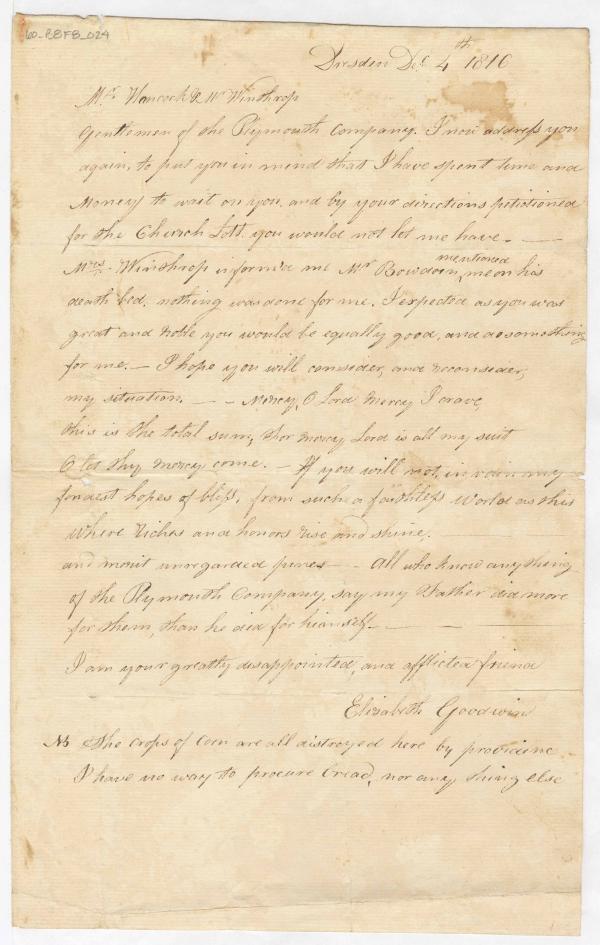 60_B8F8_024
Dresden Dec. 4th 1816
Mr. Hancock & Mr Winthrop
Gentlemen of the Plymouth Company. I now address you
again, to put you in mind that I have spent time and
Money to wait on you, and by your directions petitioned
for the Church Lott. you would not let me have. —
Mrs. Winthrop inform'd me Mr Bowdoin, mentioned me on his
death bed. nothing was done for me. I expected as you was
great and noble you would be equally good, and do something
for me. — I hope you will consider, and reconsider,
my situation. — — Mercy, O Lord mercy I crave,
this is the total sum, thor mercy Lord is all my suit
O let thy mercy come. — If you will not, in vain my
fondest hopes of bless, from such a faithless world as this
where riches and honors rise and shine. —
and merit unregarded pines — — All who know any thing
of the Plymouth Company, say my Father did more
for them, than he ded for heimself. — — —
I am your greatly disappointed, and afflicted friend
Elizabeth Goodwin
NB The crops of corn are all distroyed here by providine
I have no way to procure bread, nor any thing else